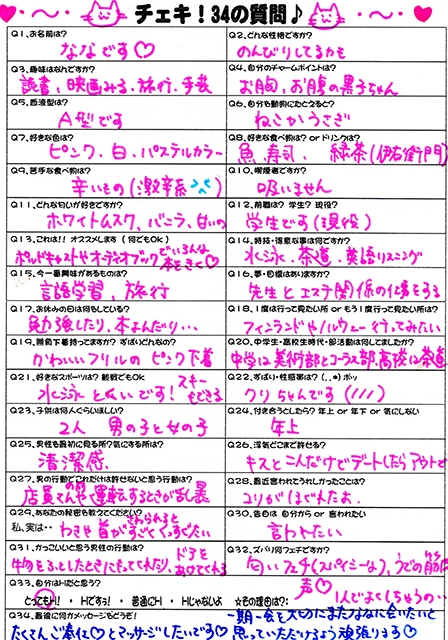 チェキ！34の質問♪
Q1.お名前は？ Q2.どんな性格ですか？
ななです♡ のんびりしてるかも
Q3.趣味はなんですか？ Q4.自分のチャームポイントは？
読書、映画みる、旅行、手芸 お胸、お腹の黒子ちゃん
Q5.血液型は？ Q6.自分を動物にたとえると？
A型です ねこかうさぎ
Q7.好きな色は？ Q8.好きな食べ物は？ or ドリンクは？
ピンク、白、パステルカラー 魚、寿司、緑茶(伊右衛門)
Q9.苦手な食べ物は？ Q10.喫煙者ですか？
辛いもの(激辛系 吸いません
Q11.どんな匂いが好きですか？ Q12.前職は？ 学生？ 現役？
ホワイトムスク、バニラ、甘いの 学生です(現役)
Q13.これは!! オススメします（何でもOK） Q14.特技・得意な事は何ですか？
ポッドキャストやオーディオブックでいろんな本をきく♡ 水泳、茶道、英語リスニング
Q15.今一番興味があるものは？ Q16.夢・目標はありますか？
言語学習、旅行 先生とエステ関係の仕事をする
Q17.お休みの日は何をしている？ Q18.1度は行って見たい所 or もう1度行って見たい所は？
勉強したり、本よんだり… フィンランドやノルウェー行ってみたい
Q19.勝負下着持ってますか？ ずばりどんなの？ Q20.中学生・高校生時代・部活動は何してましたか？
かわいいフリルのピンク下着 中学は美術部とコーラス部、高校は茶道
Q21.好きなスポーツは？ 観戦でもOK Q22.ずばり・性感帯は？（..*）ポッ
水泳とくいです！スキーもできる クリちゃんです(///)
Q23.子供は何人ぐらいほしい？ Q24.付き合うとしたら？ 年上 or 年下 or 気にしない
2人 男の子と女の子 年上
Q25.男性を最初に見る所？気にする所は？ Q26.浮気どこまで許せる？
清潔感 キスと二人だけでデートしたらアウトで
Q27.男の行動でこれだけは許せないと思う行動は？ Q28.最近言われてうれしかったことは？
店員さんや運転するときが乱暴 コリがほぐれたよ.
Q29.あなたの秘密を教えてください？ Q30.告白は 自分から or 言われたい
私、実は‥わきや首がさわられるとすごくくすぐったい 言われたい
Q31.かっこいいと思う男性の行動は？ Q32.ズバリ何フェチですか？
物をおとしたときにもってくれたり、ドアをあけてくれる 匂いフェチ(スパイシーな)、うでの筋
Q33.自分はHだと思う？ 声♡
とってもH!・Hですぅ!・普通にH・Hじゃないよ ☆その理由は？: 1人でよくしちゃうの…
Q34.最後に何かメッセージをどうぞ！ 一期一会を大切にまたななに会いたいと
たくさんご奉仕♡とマッサージしたいです♡ 思っていただけるよう頑張ります♡